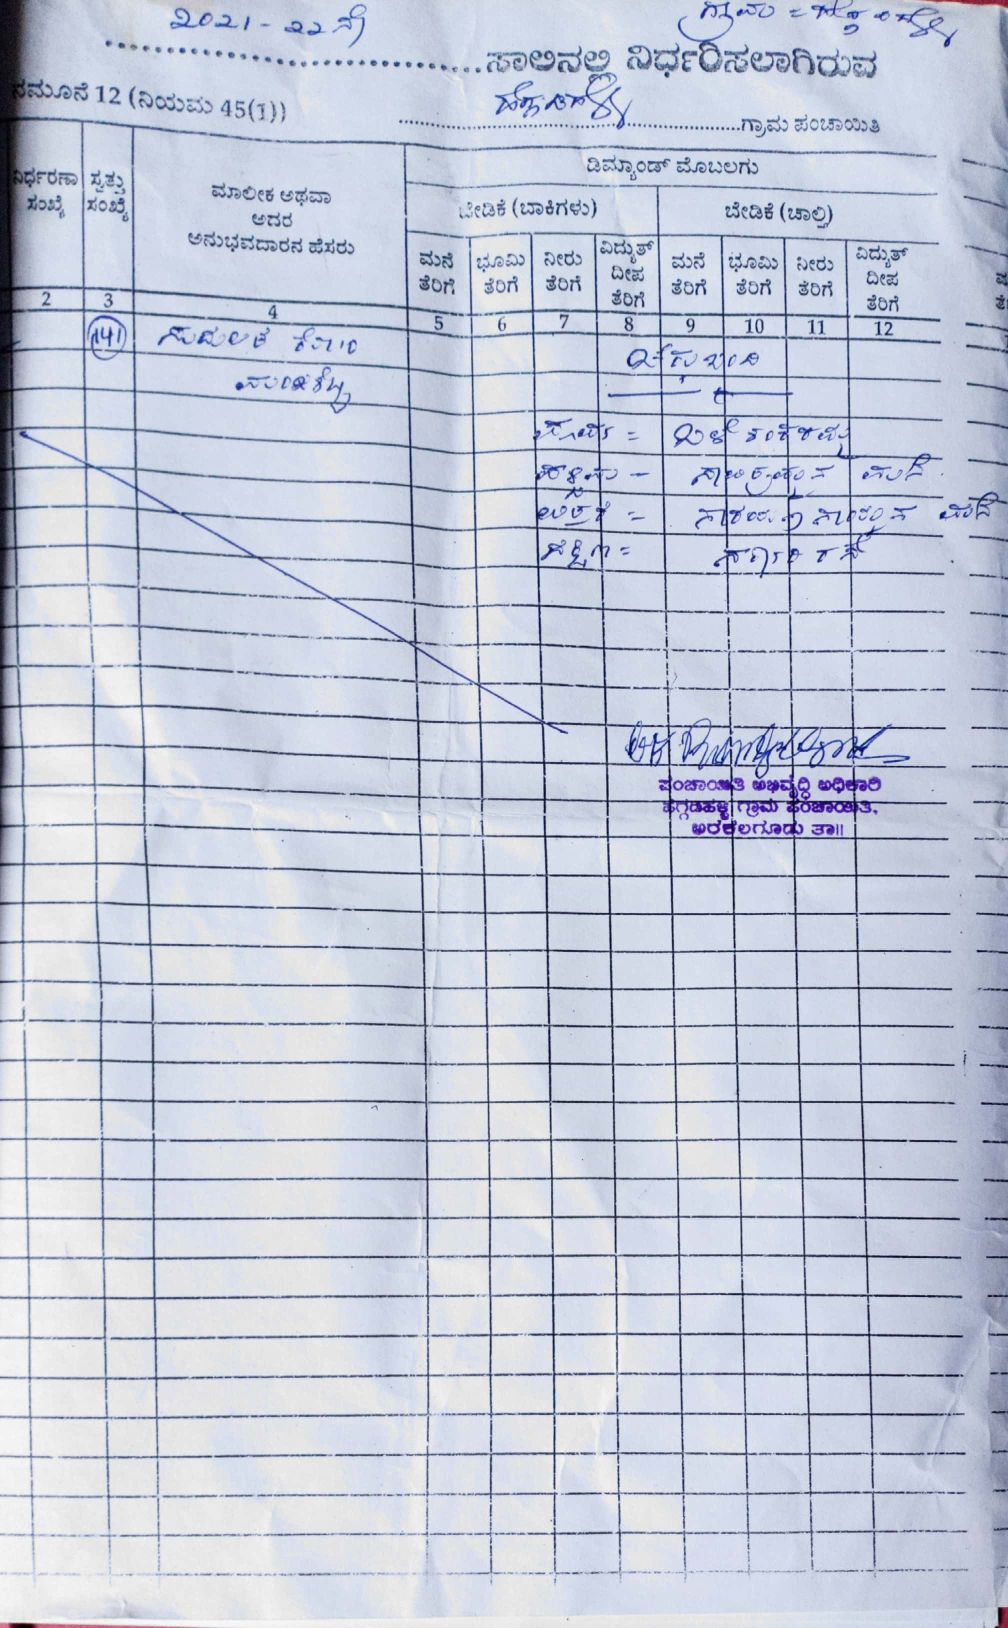 2021-22 ನೇ
ಗ್ರಾಮ =
ಸಾಲಿನಲ್ಲಿ ನಿರ್ಧರಿಸಲಾಗಿರುವ
ನಮೂನೆ 12 (ನಿಯಮ 45(1))
ಗ್ರಾಮ ಪಂಚಾಯಿತಿ
ನಿರ್ಧರಣಾ ಸಂಖ್ಯೆ
ಸ್ವತ್ತು ಸಂಖ್ಯೆ
ಮಾಲೀಕ ಅಥವಾ
ಅದರ
ಅನುಭವದಾರನ ಹೆಸರು
ಡಿಮ್ಯಾಂಡ್ ಮೊಬಲಗು
ಬೇಡಿಕೆ (ಬಾಕಿಗಳು)
ಬೇಡಿಕೆ (ಚಾಲ್ತಿ)
ಮನೆ ತೆರಿಗೆ
ಭೂಮಿ ತೆರಿಗೆ
ನೀರು ತೆರಿಗೆ
ವಿದ್ಯುತ್ ದೀಪ ತೆರಿಗೆ
ಮನೆ ತೆರಿಗೆ
ಭೂಮಿ ತೆರಿಗೆ
ನೀರು ತೆರಿಗೆ
ವಿದ್ಯುತ್ ದೀಪ ತೆರಿಗೆ
2 3 4 5 6 7 8 9 10 11 12
141
ಚೆಕ್ಕುಬಂದಿ
ಪೂರ್ವ =
ಪಶ್ಚಿಮ -
ಉತ್ತರ =
ದಕ್ಷಿಣ =
ಪಂಚಾಯಿತಿ ಅಭಿವೃದ್ಧಿ ಅಧಿಕಾರಿ
ಹೆಗ್ಗಡಿಹಳ್ಳಿ ಗ್ರಾಮ ಪಂಚಾಯಿತಿ,
ಅರಕಲಗೂಡು ತಾ॥